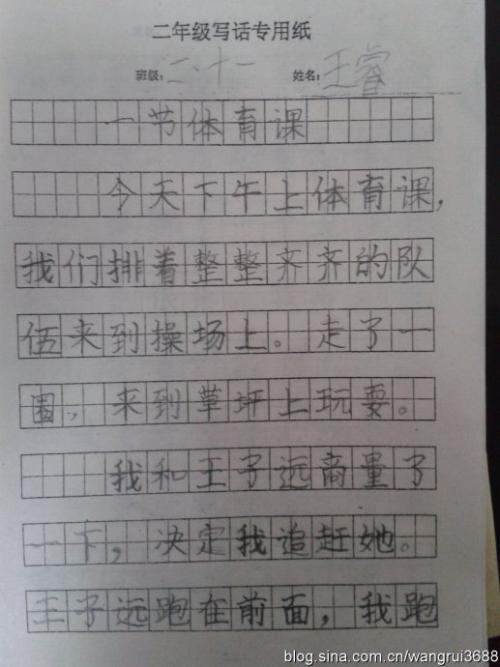 二年级写话专用纸
班级：二·十一 姓名：王睿
一节体育课
今天下午上体育课，
我们排着整整齐齐的队
伍来到操场上。走了一
圈，来到草坪上玩耍。
我和王子远商量了
一下，决定我追赶她。
王子远跑在前面，我跑
blog.sina.com.cn/wangrui3688